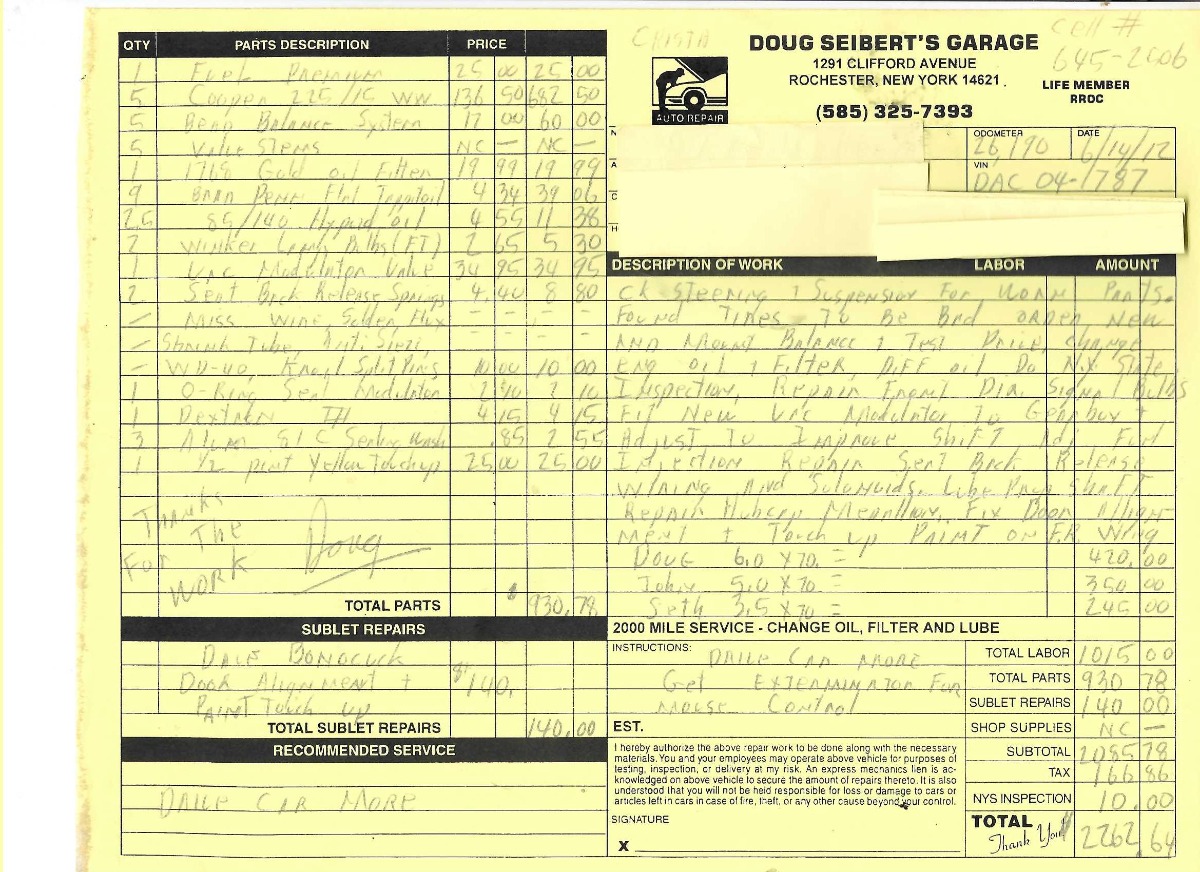 QTY PARTS DESCRIPTION PRICE
1 Fuel Premium 25 00 25 00
5 Cooper 225/15 WW 136 50 682 50
5 Bead Balance System 17 00 60 00
5 Valve Stems NC — NC —
1 1768 Gold Oil Filter 19 99 19 99
9 Penn 4 34 39 06
2.5 85/140 Hypoid oil 4 55 11 38
2 Winker Lamp Bulbs (FT) 2 65 5 30
1 Vac Modulator Valve 34 95 34 95
2 Seat Back Release Springs 4.40 8 80
— Misc Wire, Solder, Flux - - - -
— Shrink Tube, Anti Seize, - - -
— WD-40, Split Pins 10 00 10 00
1 O-Ring Seal Modulator 2 10 2 10
1 Dextron III 4 15 4 15
3 Alum S/C Sealing Wash .85 2 55
1 1/2 pint Yellow Touchup 25 00 25 00
THANKS
FOR THE
WORK Doug
TOTAL PARTS $ 930.78
SUBLET REPAIRS
Door Alignment + $140.
Paint Touch up
TOTAL SUBLET REPAIRS 140.00
RECOMMENDED SERVICE
DRIVE CAR MORE
CRISTA
Cell #
645-2606
DOUG SEIBERT'S GARAGE
1291 CLIFFORD AVENUE
ROCHESTER, NEW YORK 14621
(585) 325-7393
LIFE MEMBER
RROC
AUTO REPAIR
N
A
C
H
ODOMETER DATE
26190 6/14/12
VIN
DAC 04-1787
DESCRIPTION OF WORK LABOR AMOUNT
CK Steering + Suspension For Worn Parts.
Found Tires To Be Bad order New
AND Mount Balance + Test Drive, Change
Eng oil + Filter, Diff oil Do N.Y. State
Inspection, Repair Front Dir. Signal Bulbs
Fit New Vac Modulator To Gearbox +
Adjust To Improve Shift Adj Fuel
Injection Repair Seat Back Release
Wiring And Solonoids. Lube Prop Shaft.
Repair Hubcap Medallion, Fix Door Align-
ment + Touch up PAINT on F.R. Wing
DOUG 6.0 X 70. = 420.00
John 5.0 X 70 = 350 00
Seth 3.5 X 70 = 245 00
2000 MILE SERVICE - CHANGE OIL, FILTER AND LUBE
INSTRUCTIONS: DRIVE CAR MORE
Get EXTERMINATOR For
Mouse Control
EST.
I hereby authorize the above repair work to be done along with the necessary
materials. You and your employees may operate above vehicle for purposes of
testing, inspection, or delivery at my risk. An express mechanics lien is ac-
knowledged on above vehicle to secure the amount of repairs thereto. It is also
understood that you will not be held responsible for loss or damage to cars or
articles left in cars in case of fire, theft, or any other cause beyond your control.
SIGNATURE
X
TOTAL LABOR 1015 00
TOTAL PARTS 930 78
SUBLET REPAIRS 140 00
SHOP SUPPLIES NC —
SUBTOTAL 2085 78
TAX 166 86
NYS INSPECTION 10.00
TOTAL $2262.64
Thank You